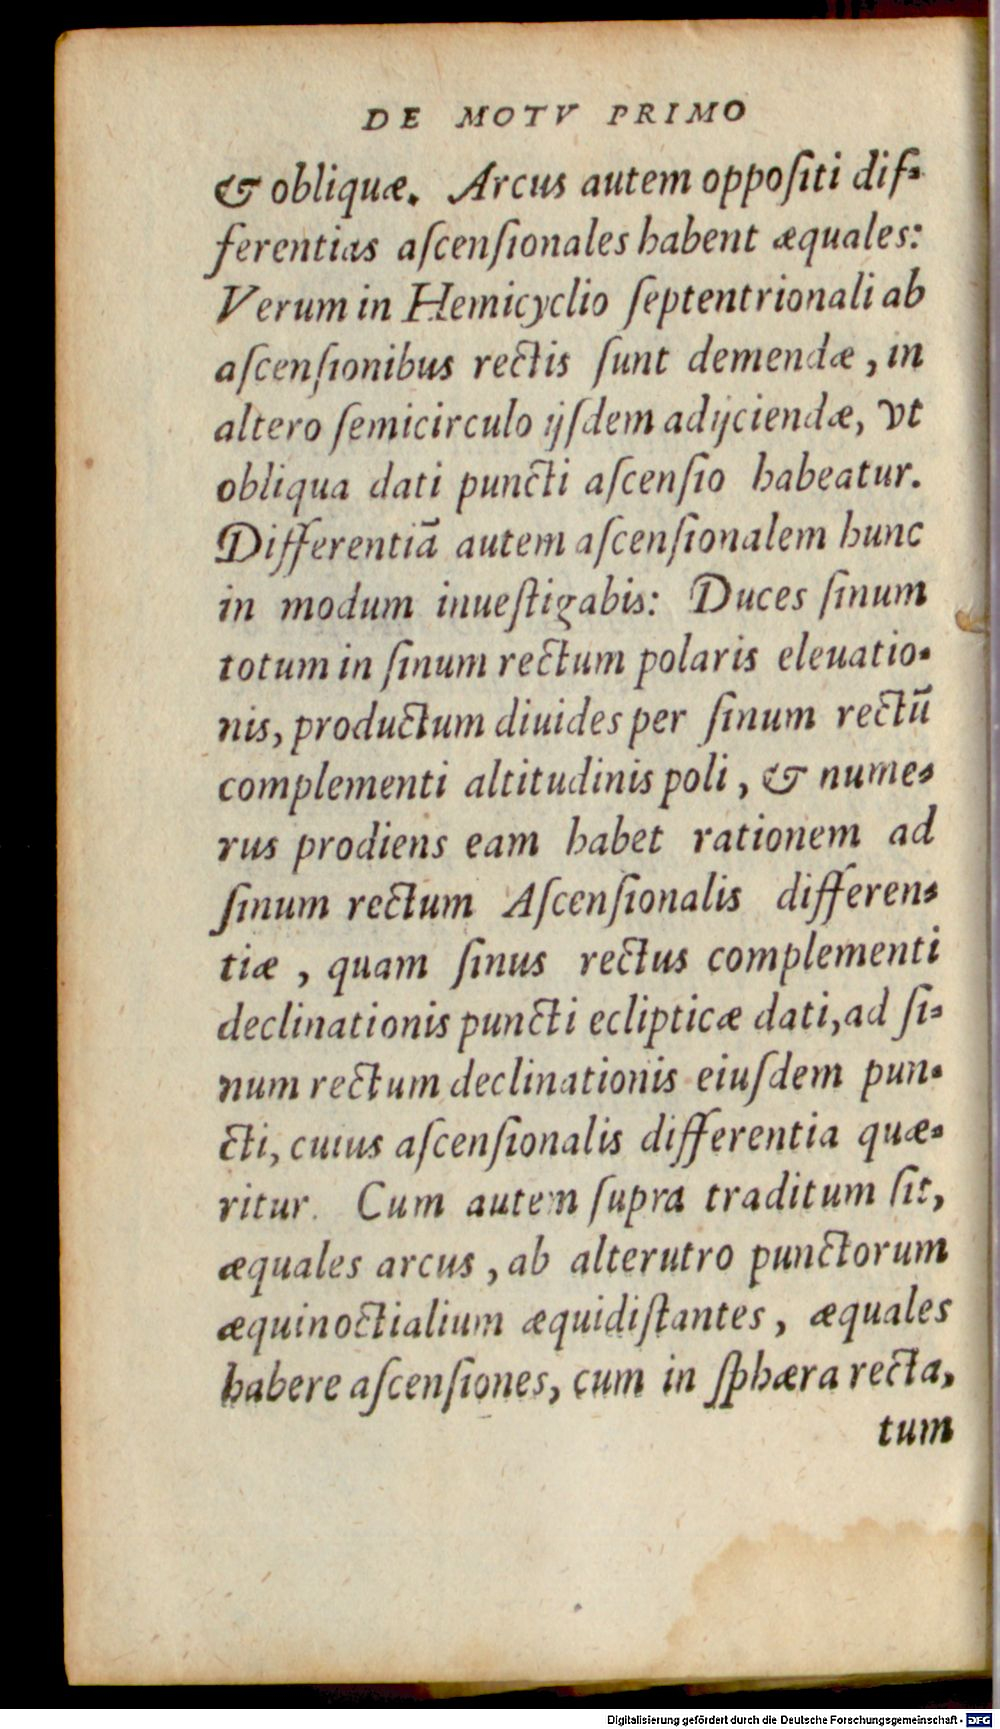 DE MOTV PRIMO
& obliquæ. Arcus autem oppoſiti dif-
ferentias aſcenſionales habent æquales:
Verum in Hemicyclio ſeptentrionali ab
aſcenſionibus rectis ſunt demendæ, in
altero ſemicirculo ijſdem adijciendæ, vt
obliqua dati puncti aſcenſio habeatur.
Differentiã autem aſcenſionalem hunc
in modum inueſtigabis: Duces ſinum
totum in ſinum rectum polaris eleuatio-
nis, productum diuides per ſinum rectũ
complementi altitudinis poli, & nume-
rus prodiens eam habet rationem ad
ſinum rectum Aſcenſionalis differen-
tiæ, quam ſinus rectus complementi
declinationis puncti eclipticæ dati, ad ſi-
num rectum declinationis eiuſdem pun-
cti, cuius aſcenſionalis differentia quæ-
ritur. Cum autem ſupra traditum ſit,
æquales arcus, ab alterutro punctorum
æquinoctialium æquidiſtantes, æquales
habere aſcenſiones, cum in ſphæra recta,
tum
Digitalisierung gefördert durch die Deutsche Forschungsgemeinschaft - DFG